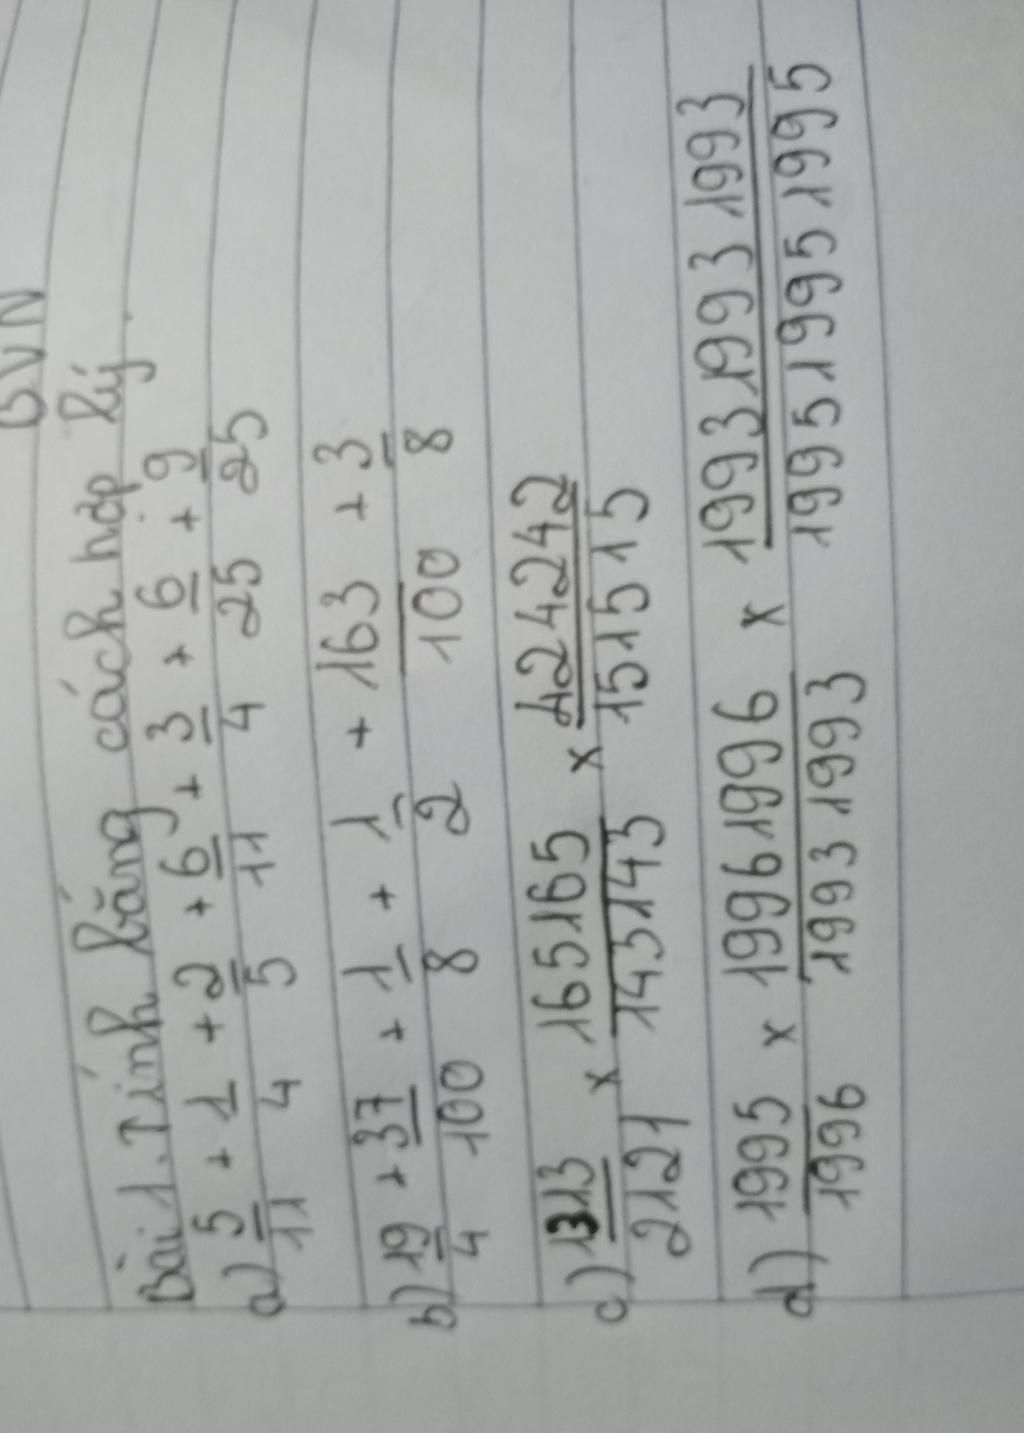 BVN
Bài 1. Tính bằng cách hợp lý.
a) 5/11 + 1/4 + 2/5 + 6/11 + 3/4 + 6/25 + 9/25
b) 19/4 + 37/100 + 1/8 + 1/2 + 163/100 + 3/8
c) 1313/2121 x 165165/143143 x 424242/151515
d) 1995/1996 x 19961996/19931993 x 199319931993/199519951995